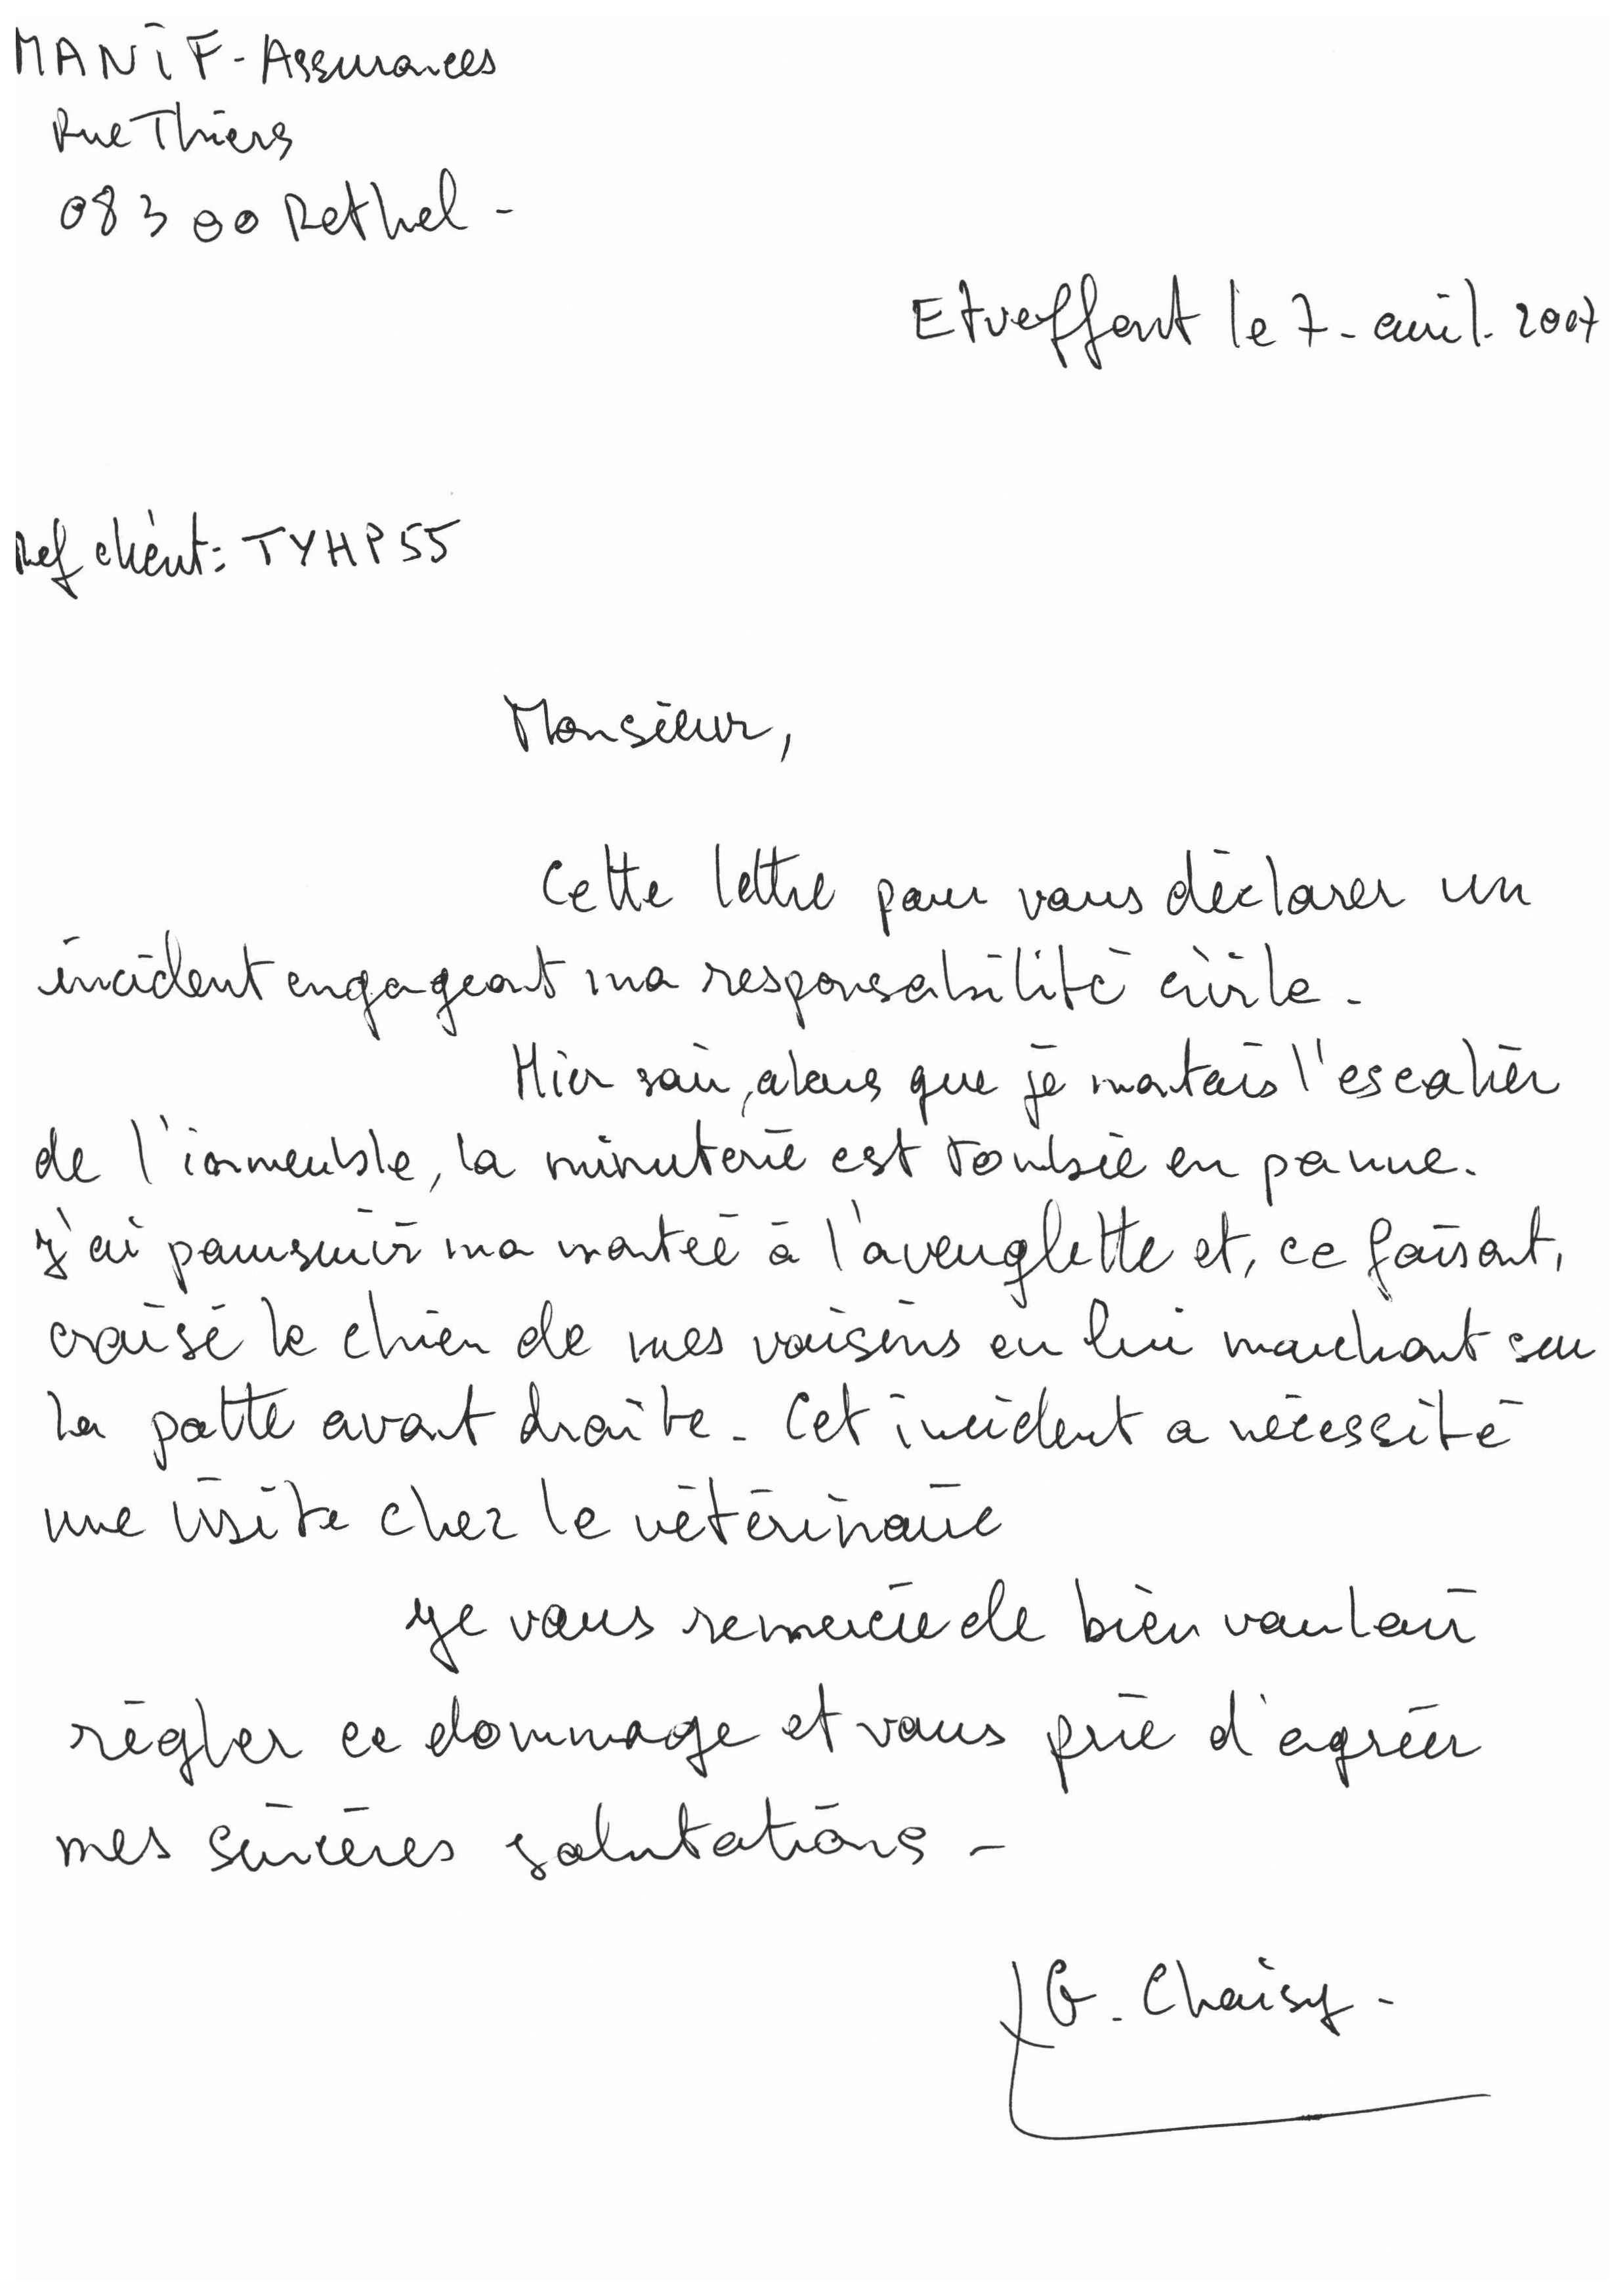 MANIF-Assurances
Rue Thiers
08300 Rethel -
Etueffont le 7-avril-2007
Ref client: TYHP55
Monsieur,
Cette lettre pour vous déclarer un
incident engageant ma responsabilité civile.
Hier soir, alors que je montais l'escalier
de l'immeuble, la minuterie est tombée en panne.
J'ai poursuivi ma montée à l'aveuglette et, ce faisant,
croisé le chien de mes voisins en lui marchant sur
la patte avant droite. Cet incident a nécessité
une visite chez le vétérinaire
Je vous remercie de bien vouloir
régler ce dommage et vous prie d'agréer
mes sincères salutations -
G. Choisy -